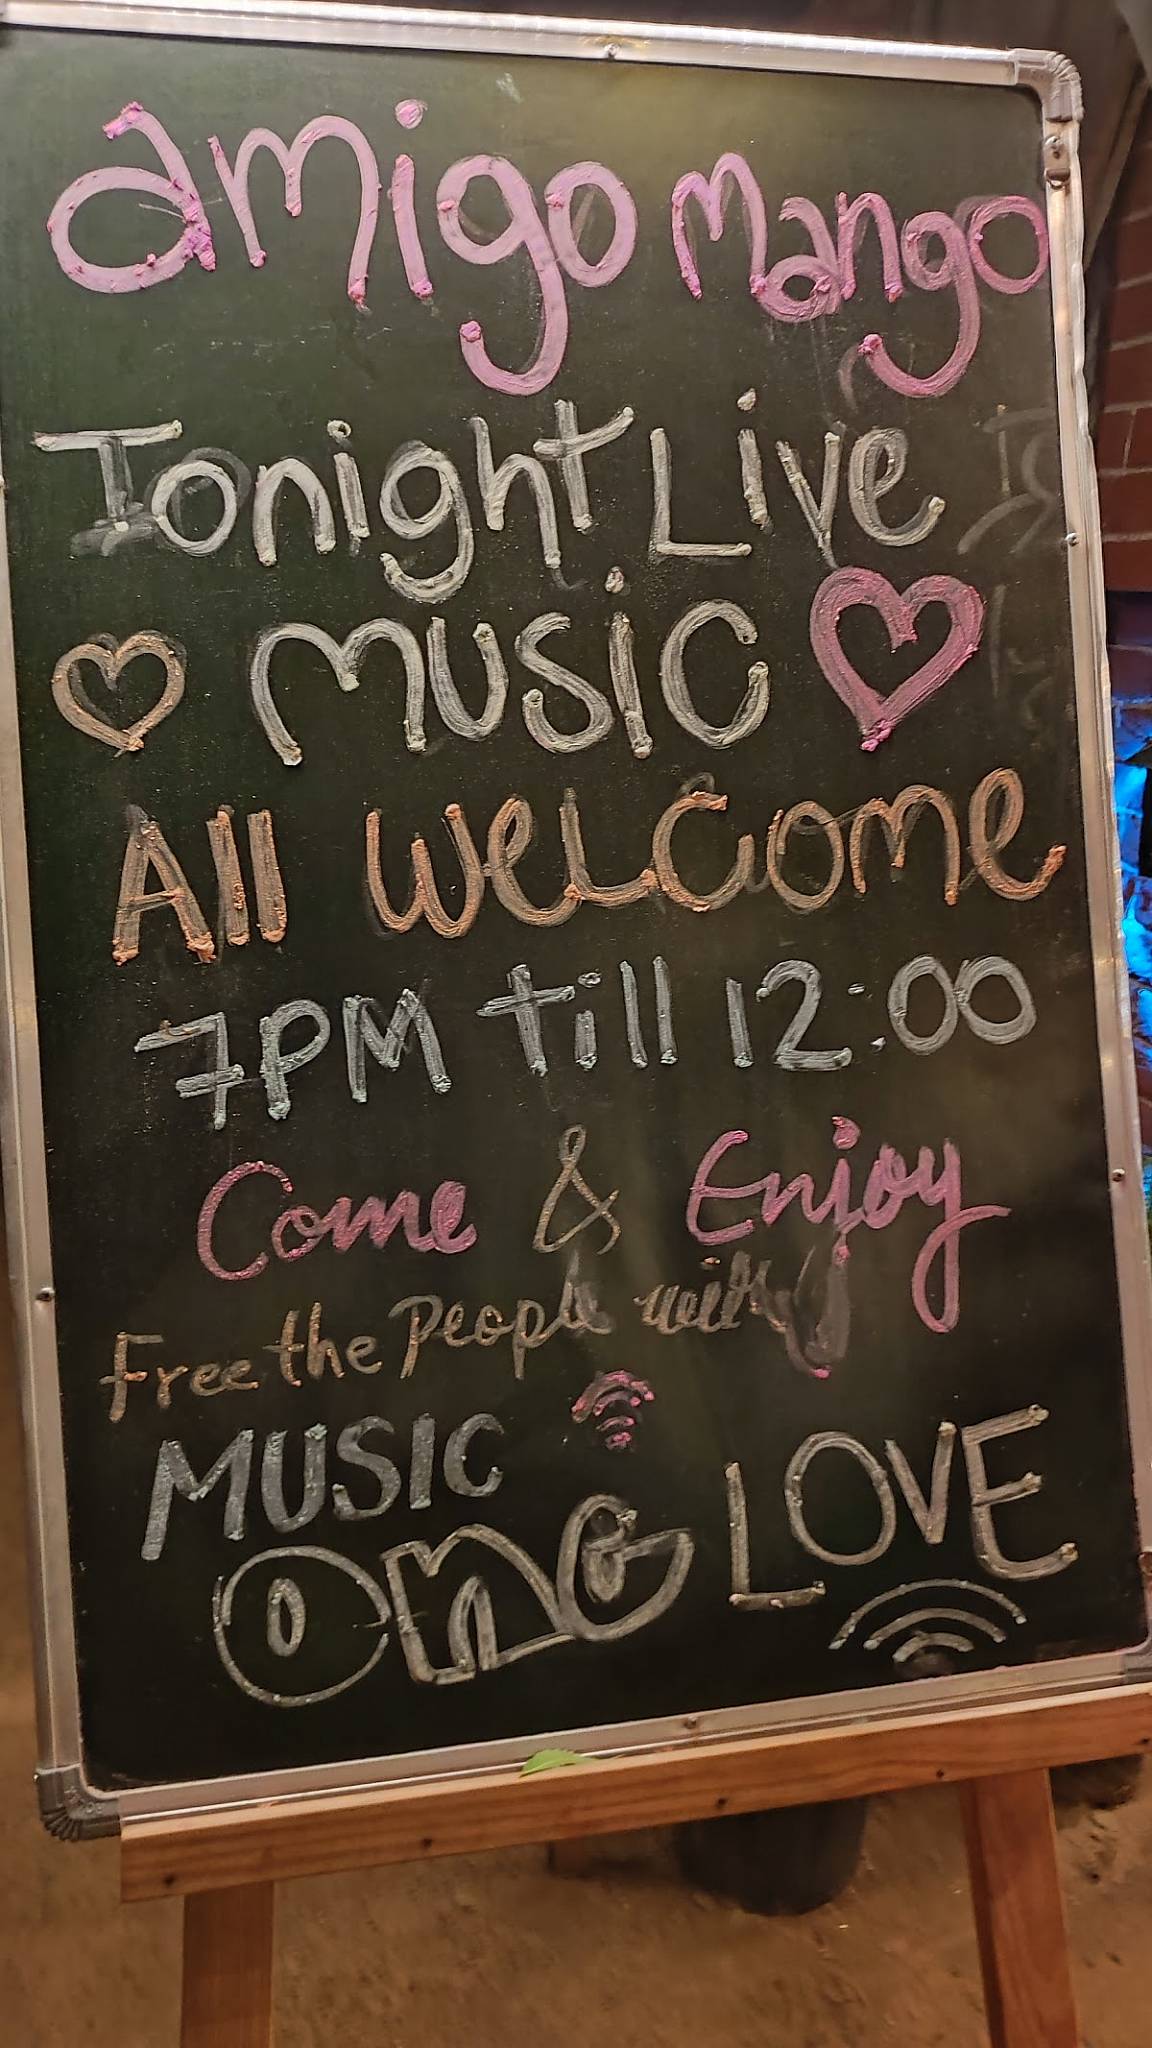 amigo mango
Tonight Live
music
All welcome
7PM till 12:00
Come & Enjoy
Free the People with
MUSIC
one LOVE